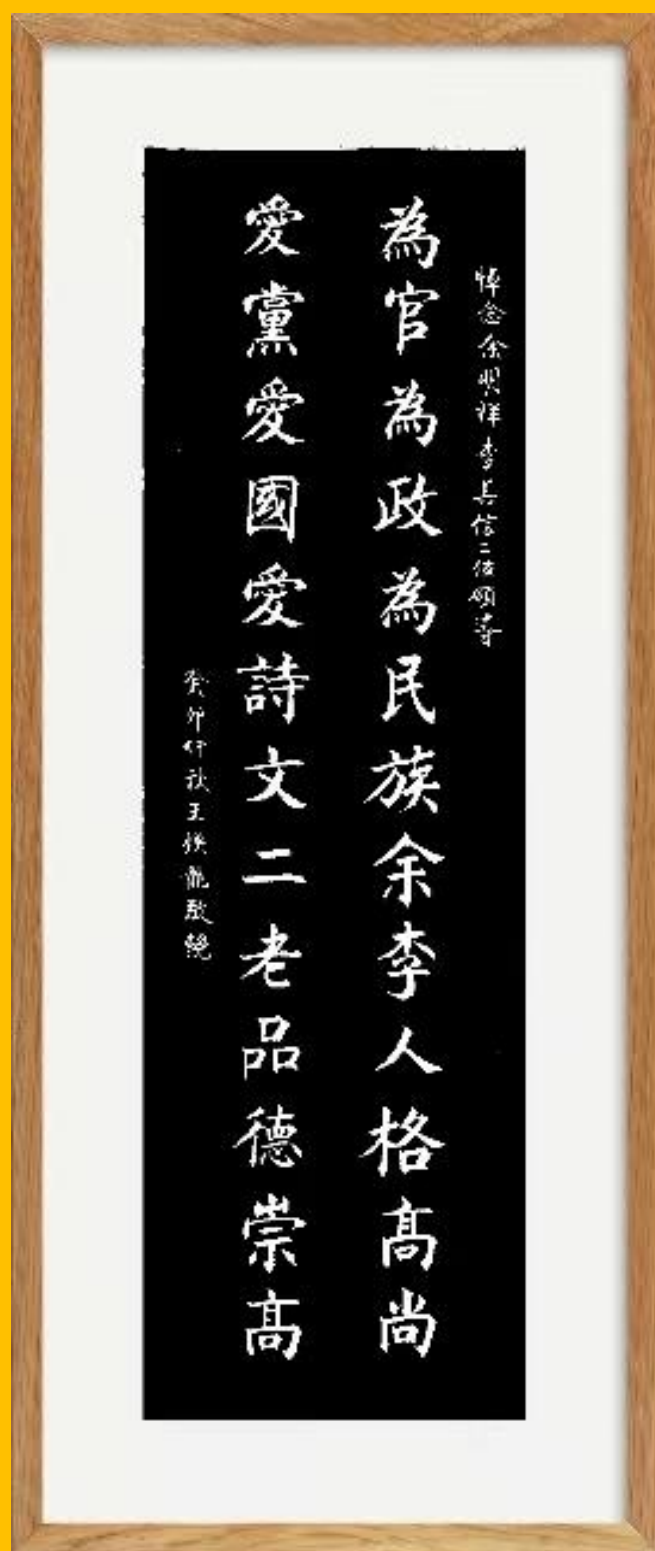 悼念余明祥李其信二位領導
為官為政為民族余李人格高尚
愛黨愛國愛詩文二老品德崇高
癸卯仲秋王